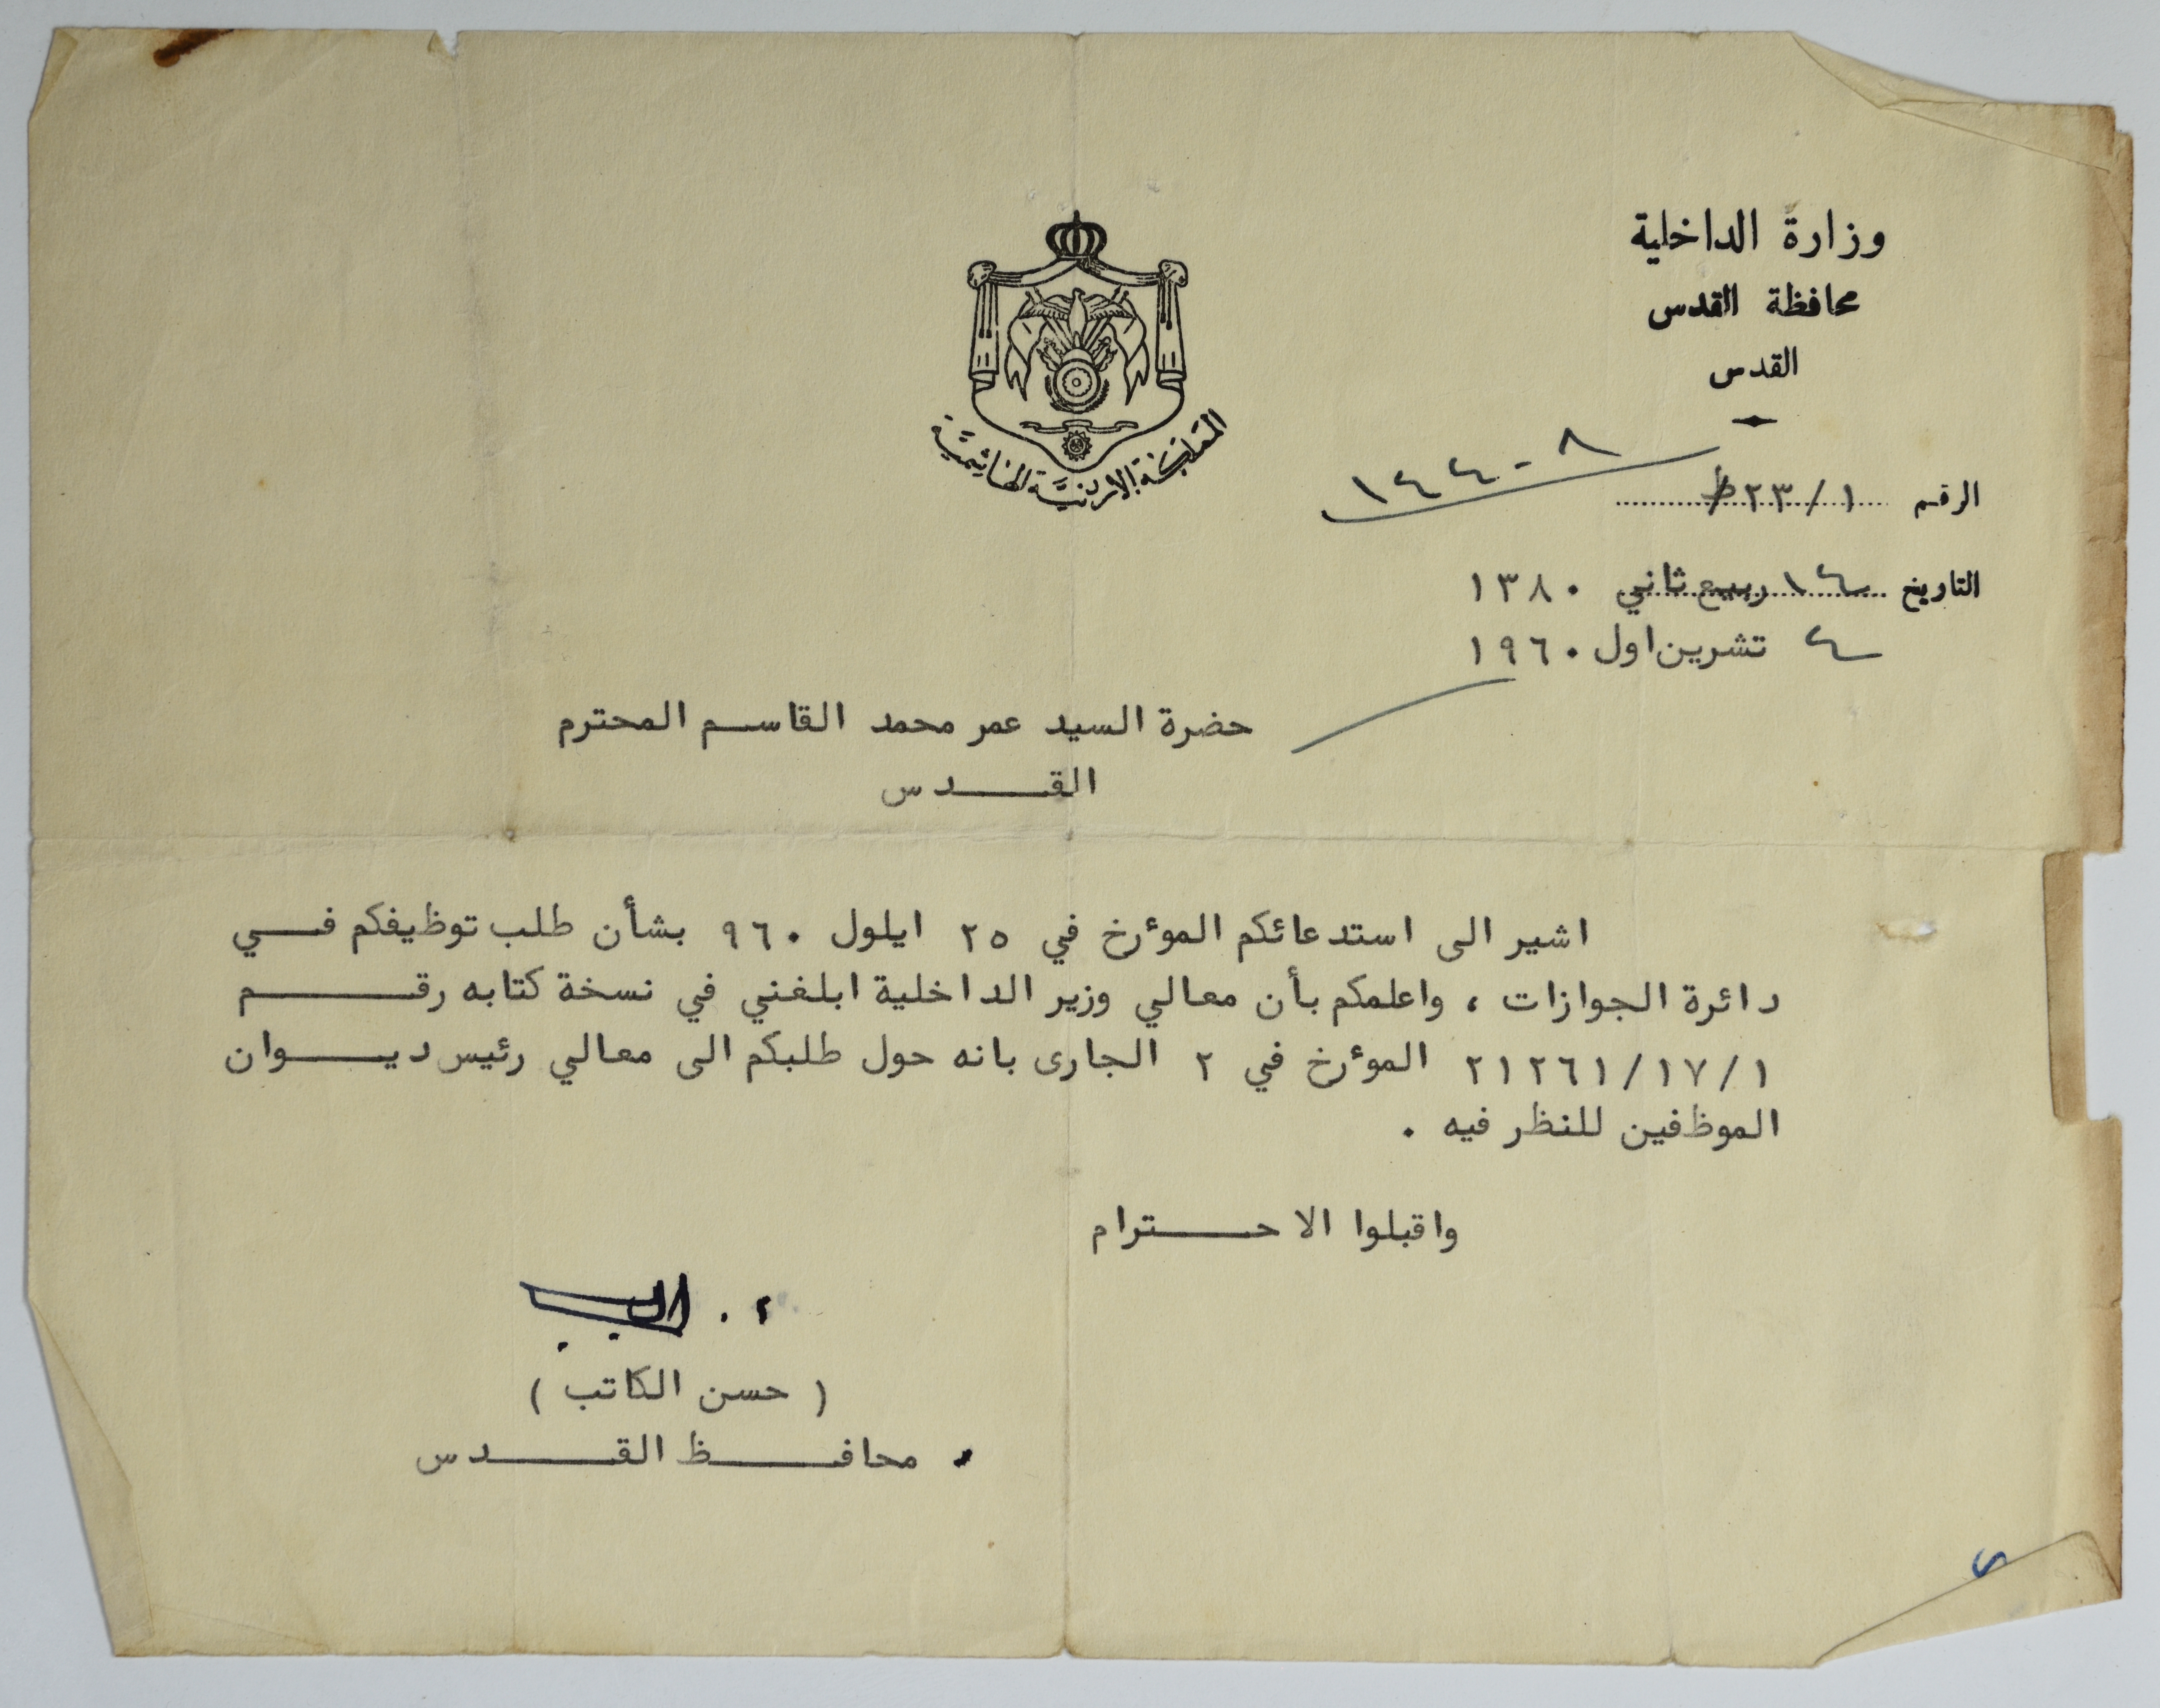 وزارة الداخلية
محافظة القدس
القدس
المملكة الاردنية الهاشمية
الرقم ١/٢٣/ط
١٤٤٠٨
التاريخ ١٤ ربيع ثاني ١٣٨٠
٤ تشرين اول ١٩٦٠
حضرة السيد عمر محمد القاسم المحترم
القدس
اشير الى استدعائكم المؤرخ في ٢٥ ايلول ٩٦٠ بشأن طلب توظيفكم في
دائرة الجوازات ، واعلمكم بأن معالي وزير الداخلية ابلغني في نسخة كتابه رقم
٢١٢٦١/١٧/١ المؤرخ في ٢ الجارى بانه حول طلبكم الى معالي رئيس ديوان
الموظفين للنظر فيه .
واقبلوا الاحترام
( حسن الكاتب )
محافظ القدس